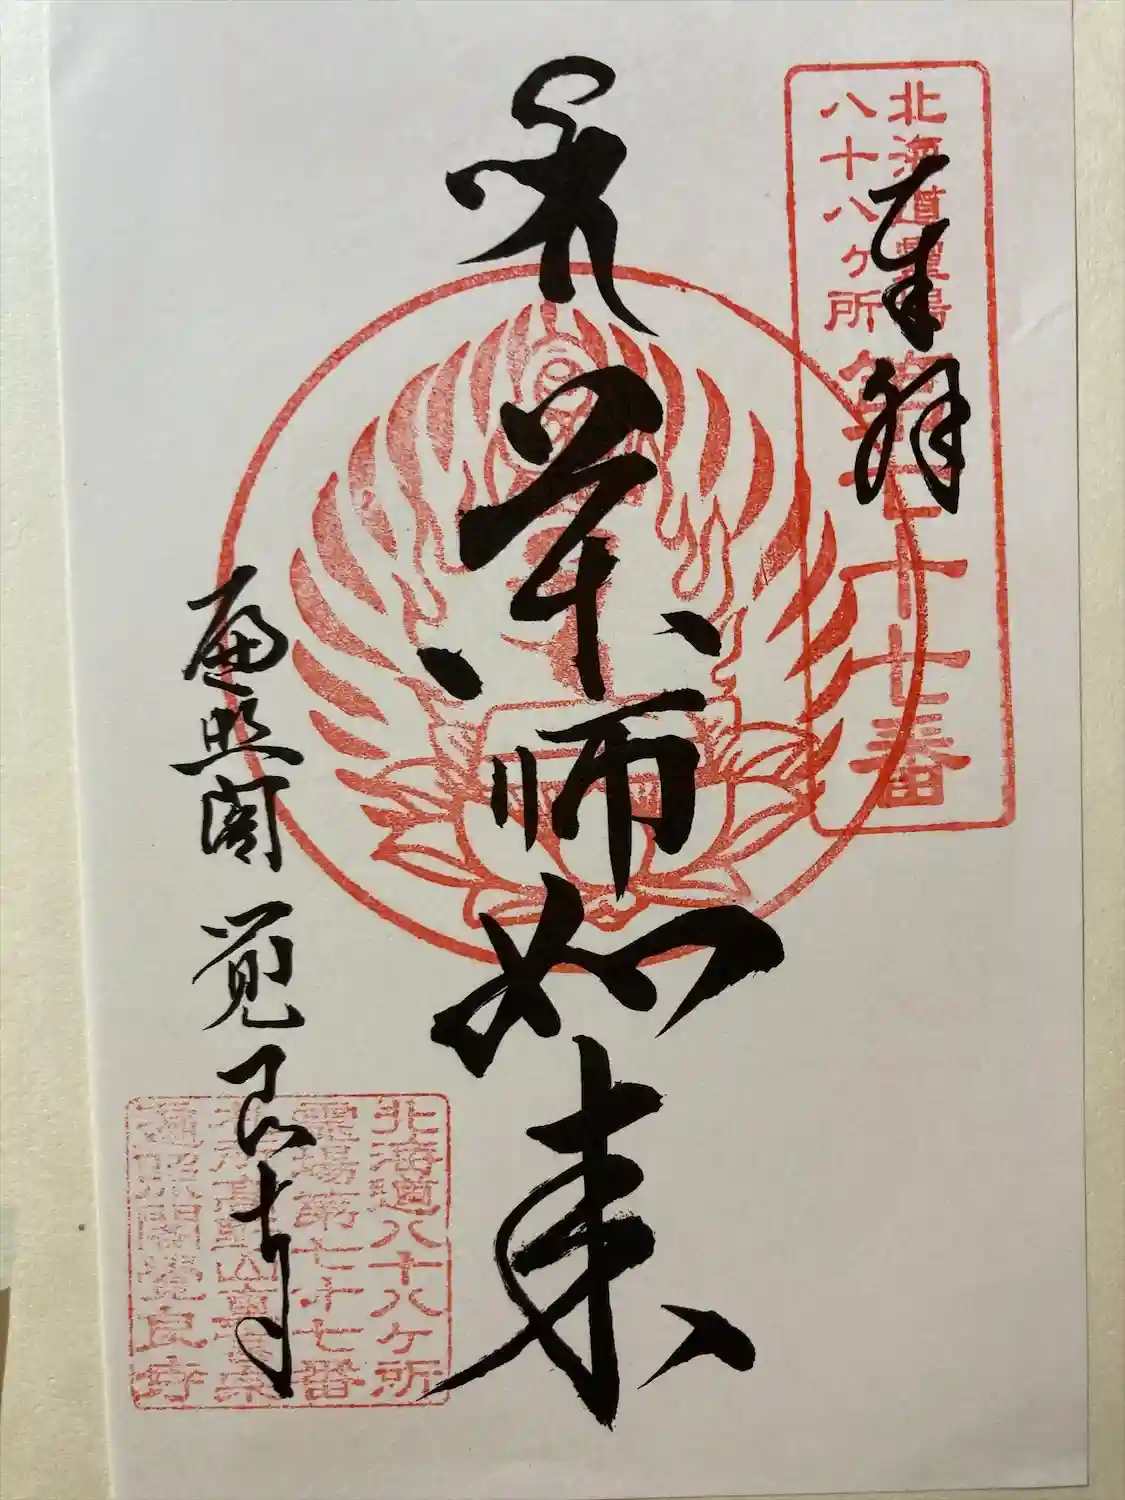 奉拝
北海道霊場
八十八ヶ所
第七十七番
薬師如来
遍照閣 覚良寺
北海道八十八ヶ所
霊場第七十七番
高野山真言宗
遍照閣覚良寺